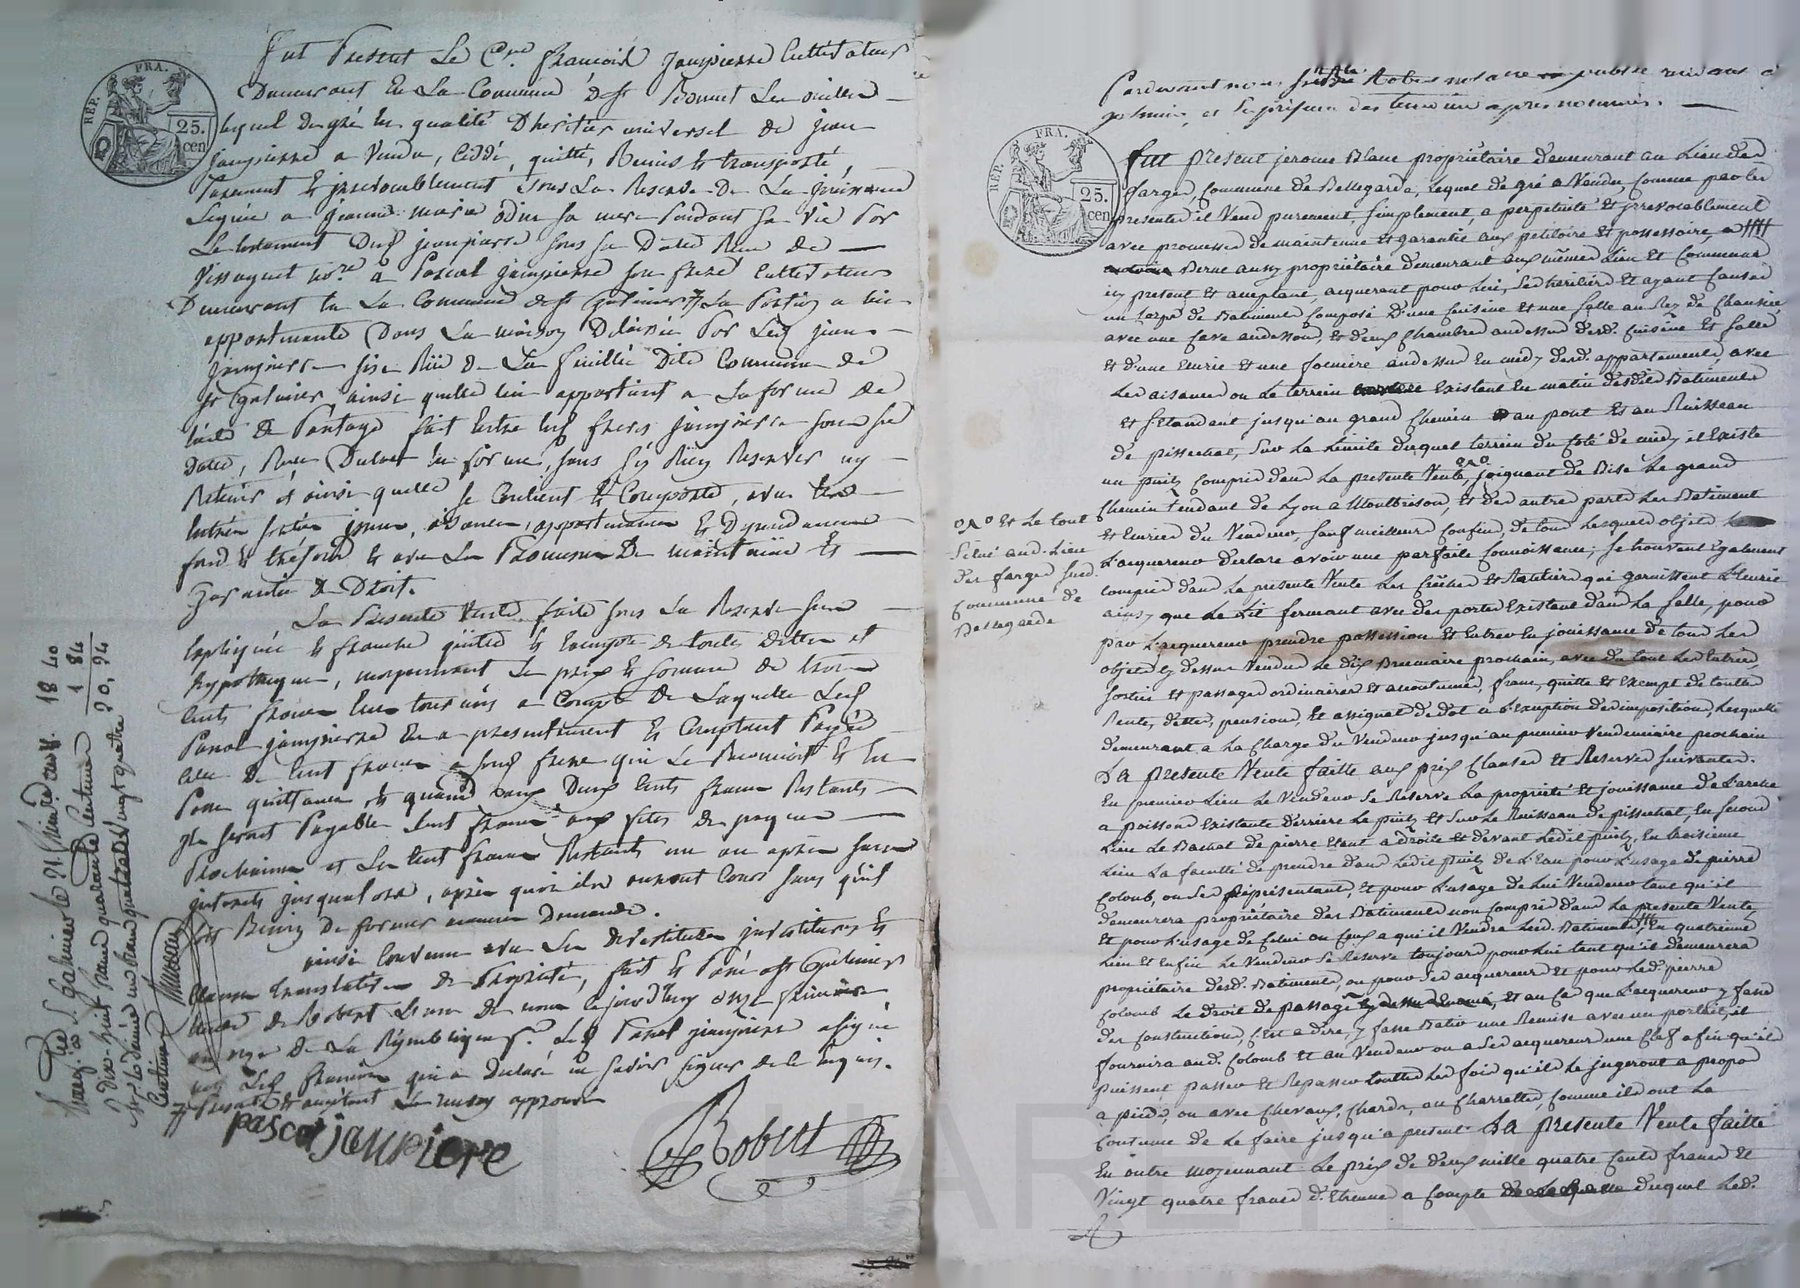 REP. FRA.
25.
cen
Fut Present Le Cen. françois Janpierre Cultivateur
Demeurant En La Commune de St Bonnet Les oulles
lequel de gré En qualité D'heritier universel de jean
janpierre a Vendu, Cédé, quitté, Remis Et transporté,
Purement Et irrevocablement sous La Reserve De La jouissance
Leguée a jeanne marie odin sa mere Pendant sa vie Par
Le testament Dud. janpierre sous sa Datte Reçu de
Vissaguet nore. à Pascal janpierre son frere Cultivateur
Demeurant En La Commune de St Galmier La Portion a lui
appartenante Dans La maison Delaissée Par Led. jean
janpierre sise Rüe de La Commune de
St Galmier, ainsi quelle lui appartient a La forme de
l'acte De Partage fait Entre les freres janpierre sous sa
Datte, Reçu Duduet En forme, sans s'y Rien Reserver ny
Retenir et ainsi quelle se Contient Et Comporte, avec
Entrées sorties jours, aisances, appartenances Et Dependances
fond Et tréfond Et avec La Promesse De maintenüe Et
Garantie de Droit.
La Presente Vente faite sous La Reserve sus
Expliquée Et franche quitte Et Exempte de toute Dettes et
hypotheques, moyennant Le prix Et somme de trois
Cents francs a Compte De Laquelle Led.
Pascal janpierre En a presentement Et Comptant Payé
celle De Cent francs a son frere qui Le Reconnoit Et En
Passe quittance Et quand aux Deux Cents francs Restants
ils seront Payable Cent francs aux fetes de paques
Prochaines et Les Cent francs Restants un an après sans
interets jusqualors, après quoi ils auront Cours sans qu'il
soit Besoin De former aucune Demande.
ainsi Convenu avec Les Devestitures investitures Et
Clauses translatives De Proprieté, fait Et Passé a St Galmier
Etude de Robert L'un De nous cejourd'huy onze frimaire
an onze De La République fse. Led. Pascal janpierre a signé
non Led. françois qui a Declaré ne savoir signer de ce Enquis.
approuvé
pascal janpiere
Robert
18 40
1 84
20, 24
Enregé. à St. Galmier le 21 frimaire an XI.
Reçu dix-huit francs quarante Centimes
Centimes
Pardevant nous Robert notaire public residant a
galmier, et En présence des temoins après nommés.
REP. FRA.
25.
cen
fut present jerome Blanc propriétaire demeurant au Lieu des
farges, Commune de Bellegarde, Lequel de gré a Vendu Comme par les
presentes il Vend purement, simplement, a perpetuité Et irrevocablement
avec promesses de maintenue Et garantie aux petitoire et possessoire, a
Berne aussy propriétaire demeurant aux mêmes Lieu et Commune
icy present Et acceptant, acquerant pour Lui, ses heritiers Et ayant Causes
un Corps de Batiment Composé d'une Cuisine Et une salle au Rez de Chaussée
avec une Cave audessous, Et deux Chambres audessus desd. Cuisine Et salle
Et d'une Ecurie Et une feniere audessus En midy desd. appartements, avec
Les aisances ou Le terrein Existant En matin desdits Batiments
Et s'Etendant jusqu'au grand Chemin au pont Et au Ruisseau
de pissechal, Sur La Limite duquel terrein du Coté de midy il Existe
un puits Compris dans La presente Vente, joignant de Bise Le grand
Chemin tendant de Lyon a Montbrison, Et des autres parts Les Batiments
Et Ecuries du Vendeur, sauf meilleurs Confins, de tous Lesquels objets
L'acquereur declare avoir une parfaite Connoissance; se trouvent Egalement
Compris dans La presente Vente Les Crêches Et Rateliers qui garnissent L'Ecurie
ainsy que Le Lit fermant avec des portes Existant dans La salle, pour
par L'acquereur prendre possession Et Entrer En jouissance de tous Les
objets cy dessus Vendus Le dix Brumaire prochain, avec du tout Les Entrées,
sorties Et passages ordinaires Et accoutumés, franc, quitte Et Exempt de toutte
Rente, dettes, pension, Et assignat de dot a L'Exception des impositions, Lesquelles
demeurant a La Charge du Vendeur jusqu'au premier Vendemiaire prochain
La presente Vente faitte aux prix Clauses Et Reserves suivantes.
En premier Lieu Le Vendeur se Reserve La propriété Et jouissance de L'arche
a poisson Existante derriere Le puits Et sur Le Ruisseau de pissechal, En second
Lieu Le Bachat de pierre Etant a droite Et devant Ledit puits, En troisieme
Lieu La faculté de prendre dans Ledit puits de L'Eau pour L'usage de pierre
Colomb, ou ses Représentans, Et pour L'usage de Lui Vendeur tant qu'il
demeurera propriétaire des Batiments non Compris dans La presente Vente
Et pour L'usage de Celui ou Ceux a qui il Vendra Lesd. Batiments, En quatrieme
Lieu Et Enfin Le Vendeur se Reserve toujours pour Lui tant qu'il demeurera
propriétaire desd. Batiments, ou pour ses acquereurs Et pour Led. pierre
Colomb Le droit de passage, Et au Cas que L'acquereur y fasse
des Constructions, C'est a dire, y fasse Batir une Remise avec un portail, il
fournira aud. Colomb Et au Vendeur ou a ses acquereurs une Clef afin qu'ils
puissent passer Et Repasser touttes Les fois qu'ils Le jugeront a propos
a pied, ou avec Chevaux, Chars, ou Charrettes, Comme ils ont La
Coutume de Le faire jusqu'a present. La presente Vente faitte
En outre moyennant Le prix de deux mille quatre Cents francs Et
Vingt quatre francs d'Etrenne a Compte duquel Led.
Et Le tout
Situé aud. Lieu
des farges susd.
Commune de
Bellegarde
CHAREYRON